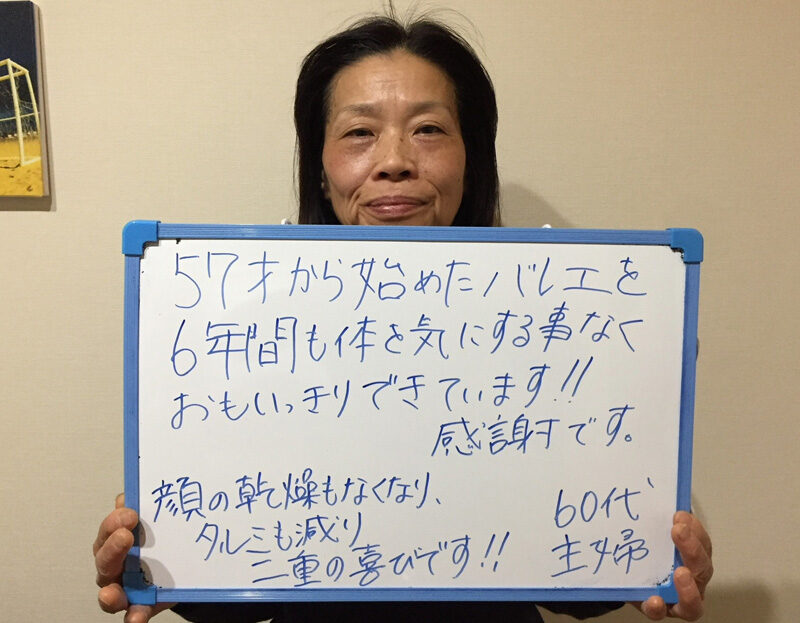 57才から始めたバレエを
6年間も体を気にする事なく
おもいっきりできています!!
感謝です。
顔の乾燥もなくなり、
タルミも減り
二重の喜びです!!
60代
主婦